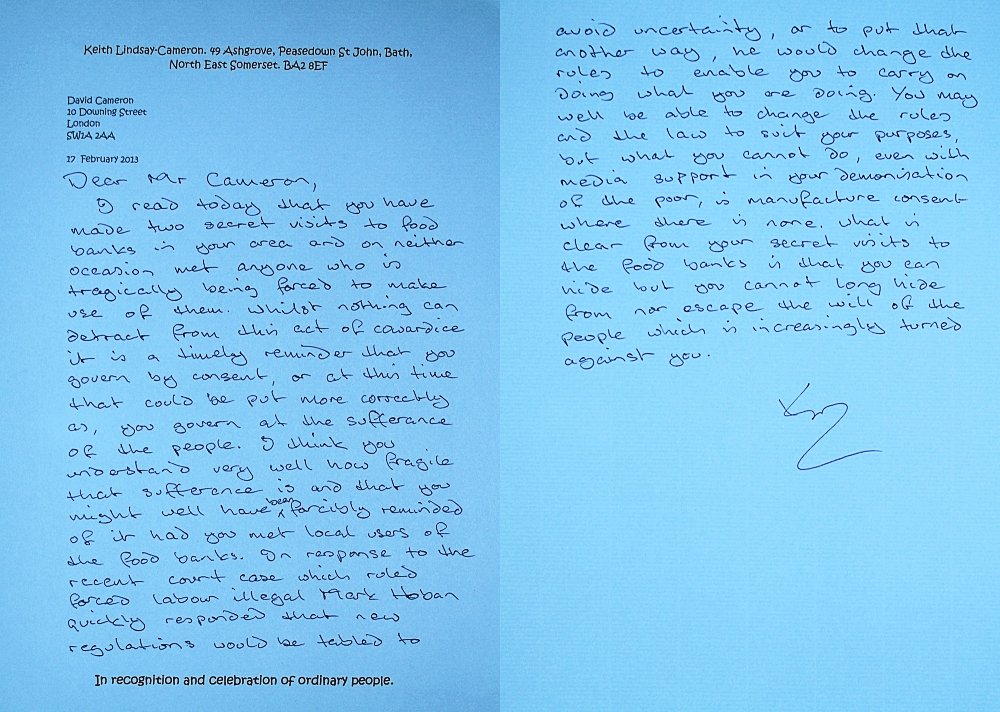 Keith Lindsay-Cameron. 49 Ashgrove, Peasedown St John, Bath,
North East Somerset. BA2 8EF
David Cameron
10 Downing Street
London
SW1A 2AA
17 February 2013
Dear Mr Cameron,
I read today that you have
made two secret visits to food
banks in your area and on neither
occasion met anyone who is
tragically being forced to make
use of them. Whilst nothing can
detract from this act of cowardice
it is a timely reminder that you
govern by consent, or at this time
that could be put more correctly
as, you govern at the sufferance
of the people. I think you
understand very well how fragile
that sufferance is and that you
might well have been forcibly reminded
of it had you met local users of
the food banks. In response to the
recent court case which ruled
forced labour illegal Mark Hoban
quickly responded that new
regulations would be tabled to
In recognition and celebration of ordinary people.
avoid uncertainty, or to put that
another way, he would change the
rules to enable you to carry on
doing what you are doing. You may
well be able to change the rules
and the law to suit your purposes,
but what you cannot do, even with
media support in your demonisation
of the poor, is manufacture consent
where there is none. What is
clear from your secret visits to
the food banks is that you can
hide but you cannot long hide
from nor escape the will of the
people which is increasingly turned
against you.